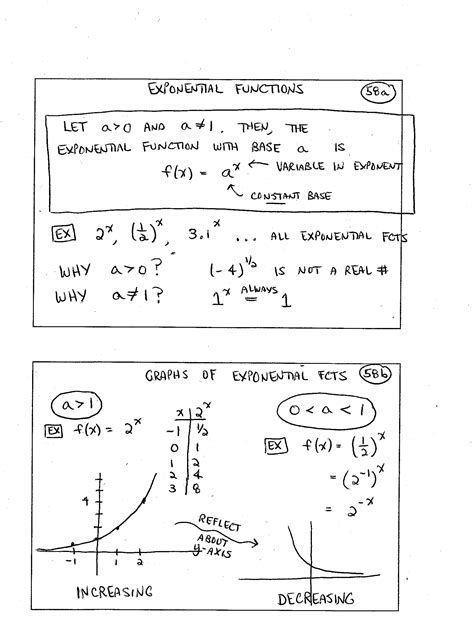 EXPONENTIAL FUNCTIONS 58a
LET a>0 AND a≠1. THEN, THE
EXPONENTIAL FUNCTION WITH BASE a IS
f(x) = aˣ ← VARIABLE IN EXPONENT
CONSTANT BASE
EX 2ˣ, (1/2)ˣ, 3.1ˣ ... ALL EXPONENTIAL FCTS
WHY a>0? (-4)^1/2 IS NOT A REAL #
WHY a≠1? 1ˣ ALWAYS = 1
GRAPHS OF EXPONENTIAL FCTS 58b
a>1
EX f(x) = 2ˣ
x 2ˣ
-1 1/2
0 1
1 2
2 4
3 8
4
-1 1 2
INCREASING
REFLECT
ABOUT
y-AXIS
0<a<1
EX f(x) = (1/2)ˣ
= (2⁻¹)ˣ
= 2⁻ˣ
DECREASING